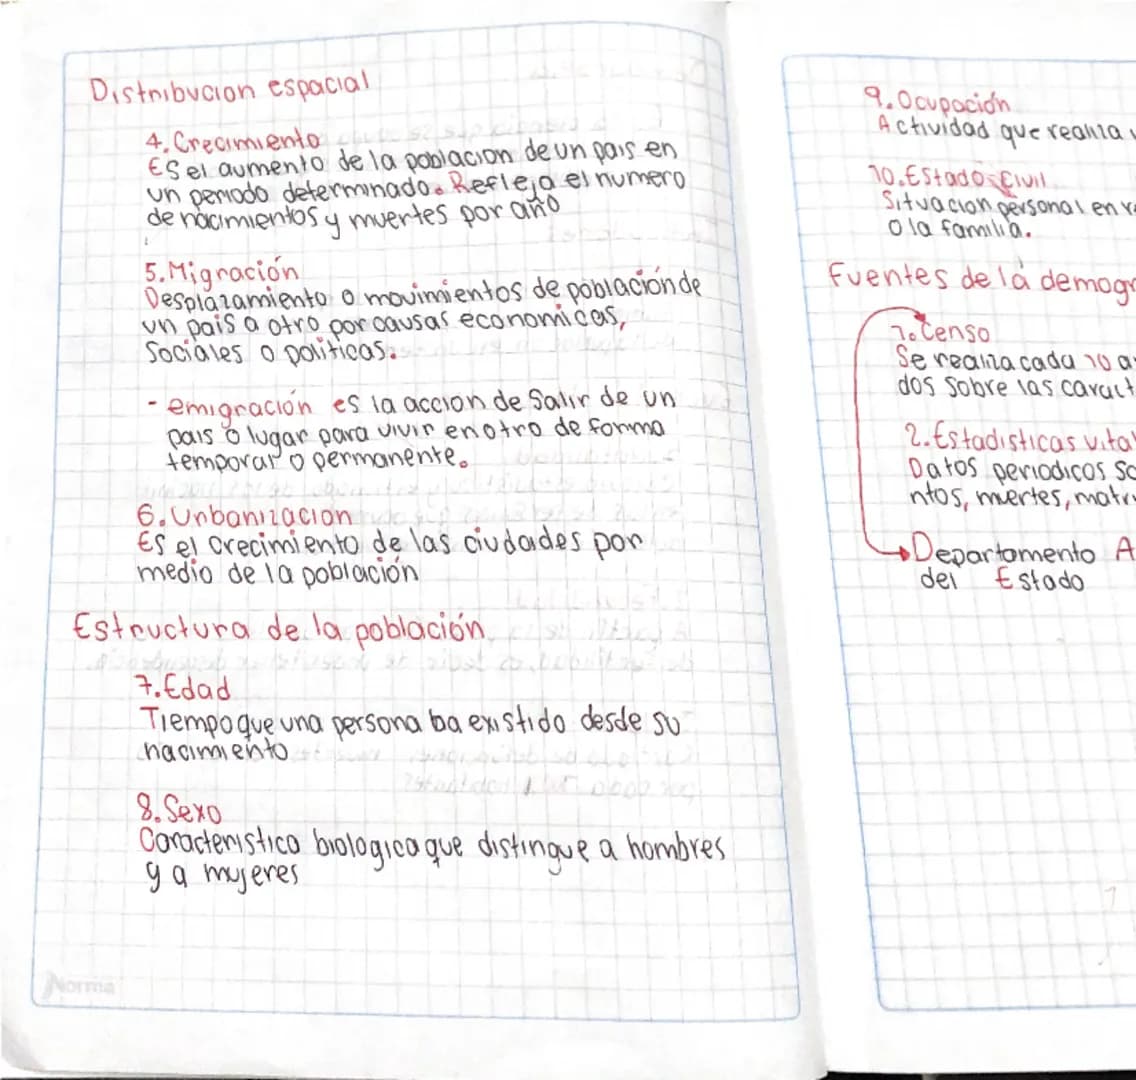 Distribucion espacial
4. Crecimiento
Es el aumento de la poblacion de un pais en
un periodo determinado. Refleja el numero
de nacimientos y muertes por año
5. Migración
Desplazamiento o movimientos de población de
un pais a otro por causas economicas,
Sociales o politicas.
- emigración es la accion de Salir de un
pais o lugar para vivir en otro de forma
temporar o permanente.
6. Urbanizacion
Es el crecimiento de las ciudades por
medio de la población
Estructura de la población
7. Edad
Tiempo que una persona ba existido desde su
nacimiento
8. Sexo
Caracteristica biologica que distingue a hombres
y a mujeres
Norma
9. Ocupación
Actividad que realiza
10. Estado Civil
Situacion personal en
o la familia.
Fuentes de la demogr
1. Censo
Se realiza cada 10 a
dos sobre las caract
2. Estadisticas vital
Datos periodicos So
ntos, muertes, matri
Departamento A
del Estado